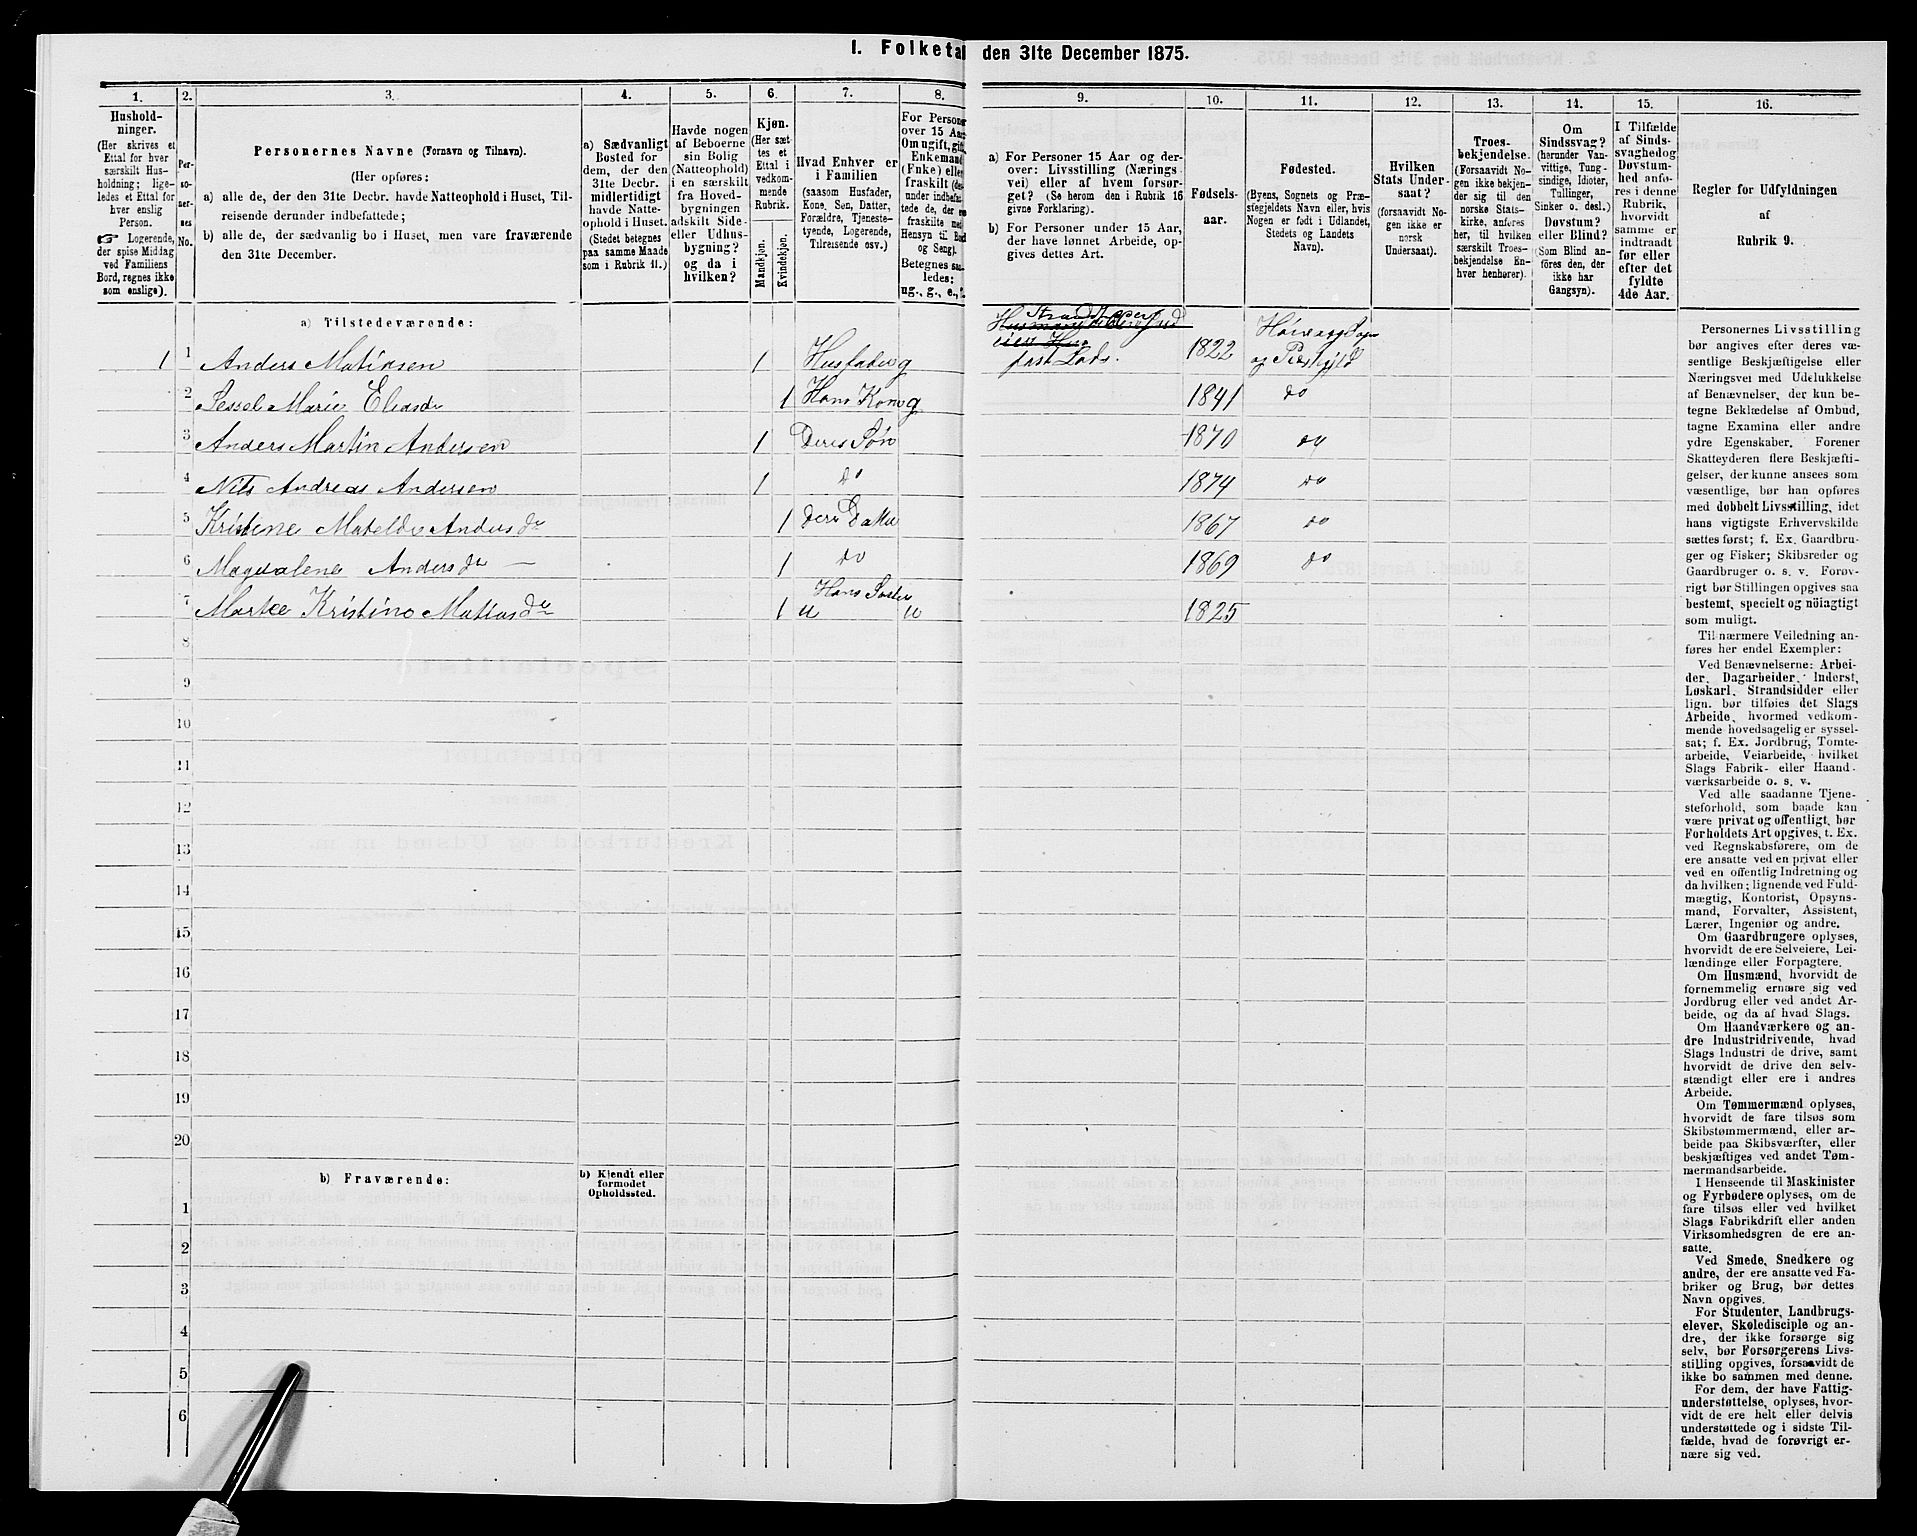 I. Folketal den 31te December 1875.
1.
2.
3.
4.
5.
6.
7.
8.
9.
10.
11.
12.
13.
14.
15.
16.
Hushold-
ninger.
(Her skrives et
Ettal for hver
særskilt Hus-
holdning; lige-
ledes et Ettal
for hver enslig
Person.
☞ Logerende,
der spise Middag
ved Familiens
Bord, regnes ikke
som enslige).
Per-
so-
ner-
nes
No.
Personernes Navne (Fornavn og Tilnavn).
(Her opføres:
a) alle de, der den 31te Decbr. havde Natteophold i Huset, Til-
reisende derunder indbefattede;
b) alle de, der sædvanlig bo i Huset, men vare fraværende
den 31te December.
a) Sædvanligt
Bosted for
dem, der den
31te Decbr.
midlertidigt
havde Natte-
ophold i Huset.
(Stedet betegnes
paa samme Maade
som i Rubrik 11.)
Havde nogen
af Beboerne
sin Bolig
(Natteophold)
i en særskilt
fra Hoved-
bygningen
adskilt Side-
eller Udhus-
bygning?
og da i
hvilken?
Kjøn.
(Her sæt-
tes et
Ettal i
vedkom-
mende
Rubrik.
Mandkjøn.
Kvindekjøn.
Hvad Enhver er
i Familien
(saasom Husfader,
Kone, Søn, Datter,
Forældre, Tjeneste-
tyende, Logerende,
Tilreisende osv.)
For Personer
over 15 Aar
Om ugift, gift,
Enkemand
(Enke) eller
fraskilt (der-
under indbefat-
tede de, der ere
fraskilte med
Hensyn til Bord
og Seng).
Betegnes saa-
ledes:
ug., g., e., f.
a) For Personer 15 Aar og der-
over: Livsstilling (Nærings-
vei) eller af hvem forsør-
get? (Se herom den i Rubrik 16
givne Forklaring).
b) For Personer under 15 Aar,
der have lønnet Arbeide, op-
gives dettes Art.
Fødsels-
aar.
Fødested.
(Byens, Sognets og Præ-
stegjeldets Navn eller, hvis
Nogen er født i Udlandet,
Stedets og Landets
Navn).
Hvilken
Stats Under-
saat?
(forsaavidt No-
gen ikke er
norsk
Undersaat).
Troes-
bekjendelse.
(Forsaavidt No-
gen ikke bekjen-
der sig til den
norske Stats-
kirke, anføres
her, til hvilken
særskilt Troes-
bekjendelse En-
hver henhører).
Om
Sindssvag?
(herunder Van-
vittige, Tung-
sindige, Idioter,
Tullinger,
Sinker o. desl.)
Døvstum?
eller Blind?
(Som Blind an-
føres den, der
ikke har
Gangsyn).
I Tilfælde
af Sinds-
svaghed og
Døvstum-
hed anfø-
res i denne
Rubrik,
hvorvidt
samme er
indtraadt
før eller
efter det
fyldte
4de Aar.
Regler for Udfyldningen
af
Rubrik 9.
a) Tilstedeværende:
1 1 Anders Matiasen 1 Husfader g fast Lods. 1822 og Præstgjeld
2 Sessel Marie Eliasdr 1 Hans Kone g 1841 do
3 Anders Martin Andersen 1 Deres Søn 1870 do
4 Nils Andreas Andersen 1 do 1874 do
5 Kristene Matelde Andersdr 1 Deres Datter 1867 do
6 Magdalene Andersdr — 1 do 1869 do
7 Marte Kristine Matiasdr 1 Hans Søster u u 1825
8
9
10
11
12
13
14
15
16
17
18
19
20
b) Fraværende:
b) Kjendt eller
formodet
Opholdssted.
1
2
3
4
5
6
Personernes Livsstilling
bør angives efter deres væ-
sentlige Beskjæftigelse eller
Næringsvei med Udelukkelse
af Benævnelser, der kun be-
tegne Beklædelse af Ombud,
tagne Examina eller andre
ydre Egenskaber. Forener
Skatteyderen flere Beskjæfti-
gelser, der kunne ansees som
væsentlige, bør han opføres
med dobbelt Livsstilling, idet
hans vigtigste Erhvervskilde
sættes først; f. Ex. Gaardbru-
ger og Fisker; Skibsreder og
Gaardbruger o. s. v. Forøv-
rigt bør Stillingen opgives saa
bestemt, specielt og nöiagtigt
som muligt.
Til nærmere Veiledning an-
føres her endel Exempler:
Ved Benævnelserne: Arbei-
der, Dagarbeider, Inderst,
Løskarl, Strandsidder eller
lign. bør tilføies det Slags
Arbeide, hvormed vedkom-
mende hovedsagelig er syssel-
sat; f. Ex. Jordbrug, Tomte-
arbeide, Veiarbeide, hvilket
Slags Fabrik- eller Haand-
værksarbeide o. s. v.
Ved alle saadanne Tjene-
steforhold, som baade kan
være privat og offentligt, bør
Forholdets Art opgives, t. Ex.
ved Regnskabsførere, om de
ere ansatte ved en privat eller
ved en offentlig Indretning og
da hvilken; lignende ved Fuld-
mægtig, Kontorist, Opsyns-
mand, Forvalter, Assistent,
Lærer, Ingeniør og andre.
Om Gaardbrugere oplyses,
hvorvidt de ere Selveiere, Lei-
lændinge eller Forpagtere.
Om Husmænd, hvorvidt de
fornemmelig ernære sig ved
Jordbrug eller ved andet Ar-
beide, og da af hvad Slags.
Om Haandværkere og an-
dre Industridrivende, hvad
Slags Industri de drive, samt
hvorvidt de drive den selv-
stændigt eller ere i andres
Arbeide.
Om Tømmermænd oplyses,
hvorvidt de fare tilsøs som
Skibstømmermænd, eller ar-
beide paa Skibsværfter, eller
beskjæftiges ved andet Tøm-
mermandsarbeide.
I Henseende til Maskinister
og Fyrbødere oplyses, om de
fare tilsøs eller ved hvilket
Slags Fabrikdrift eller anden
Virksomhedsgren de ere an-
satte.
Ved Smede, Snedkere og
andre, der ere ansatte ved Fa-
briker og Brug, bør dettes
Navn opgives.
For Studenter, Landbrugs-
elever, Skoledisciple og an-
dre, der ikke forsørge sig
selv, bør Forsørgerens Livs-
stilling opgives, forsaavidt de
ikke bo sammen med denne.
For dem, der have Fattig-
understøttelse, oplyses, hvor-
vidt de ere helt eller delvis
understøttede og i sidste Til-
fælde, hvad de forøvrigt er-
nære sig ved.